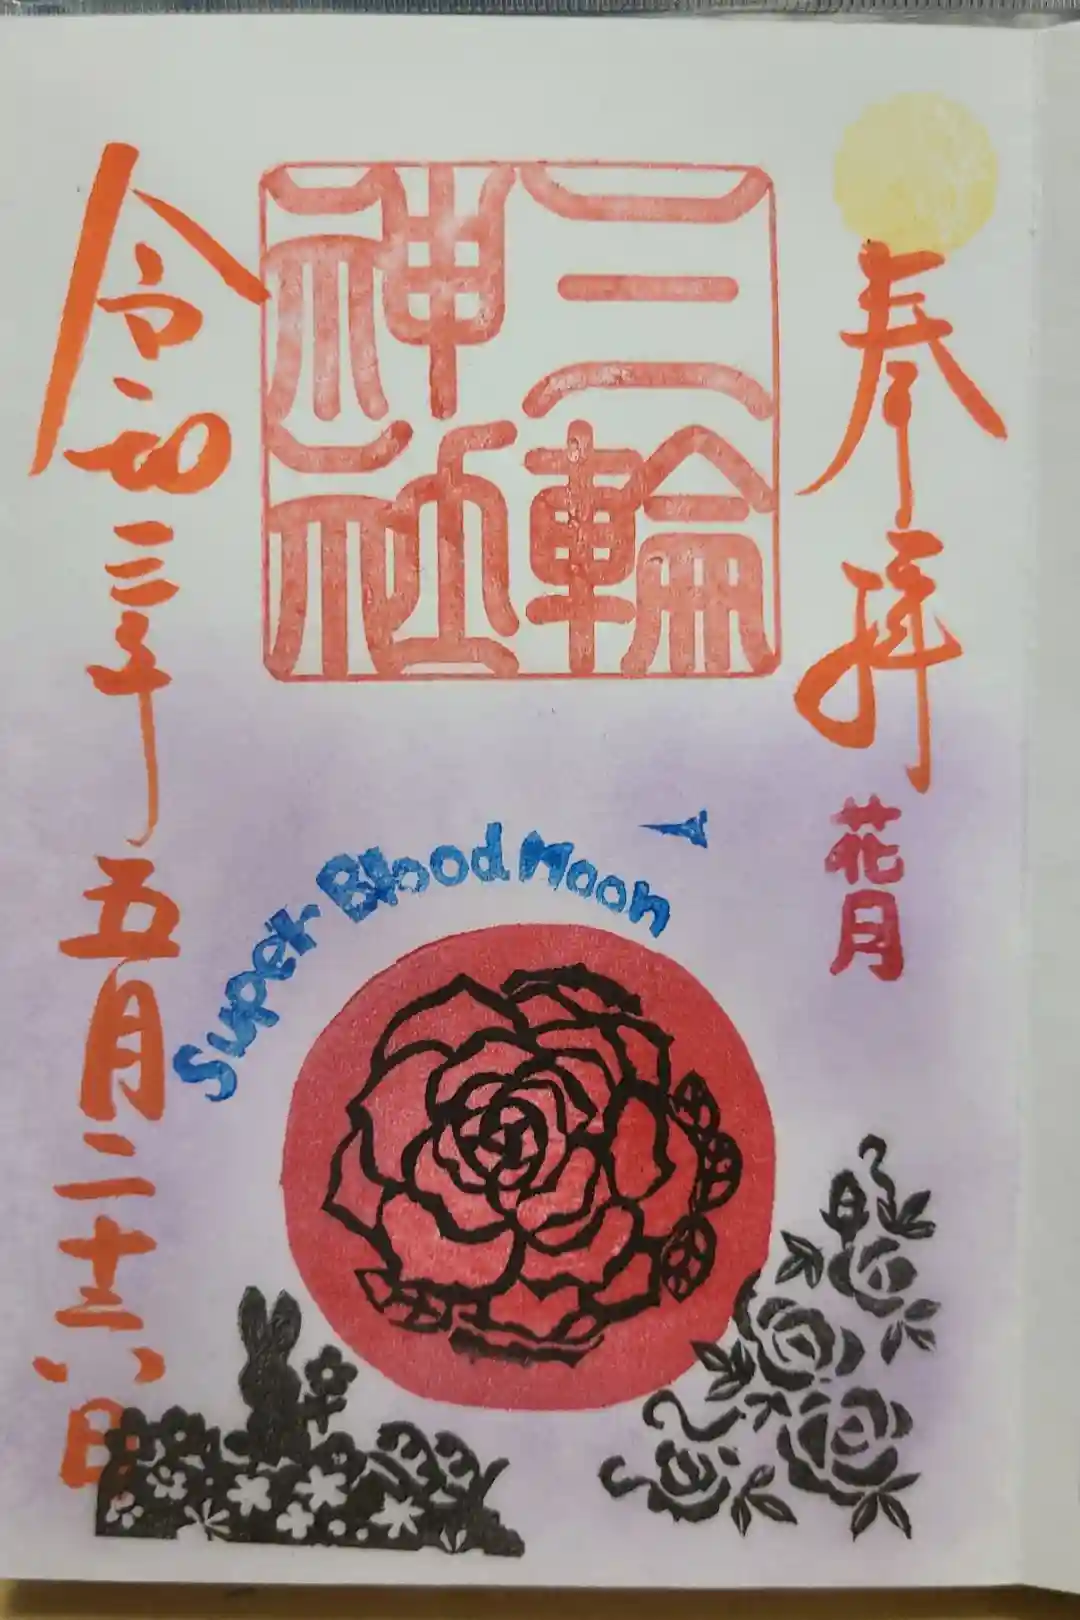 奉拝
花月
三輪
神社
Super Blood Moon
令和三年五月二十六日